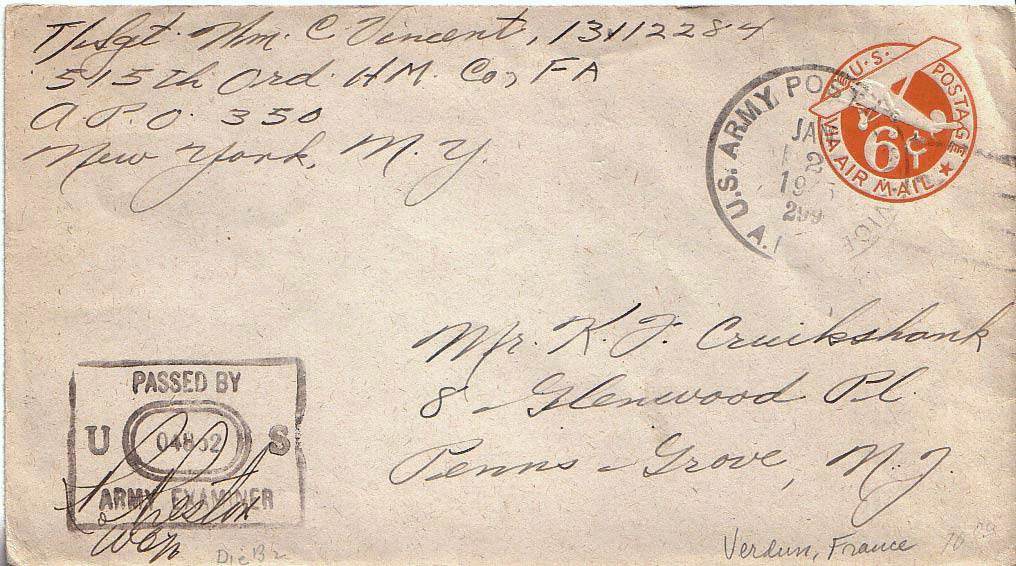 T/Sgt. Wm. C Vincent, 13112284
515th Ord. HM. Co, FA
A.P.O. 350
New York, N.Y.
U.S. ARMY POSTAL
JAN
2
19
299
A.P
U.S. POSTAGE
6¢
VIA AIR MAIL
Mr. K. J. Cruikshank
8 Glenwood Pl.
Penns Grove, N.J.
PASSED BY
U S
ARMY EXAMINER
Die B2
Verdun, France 70